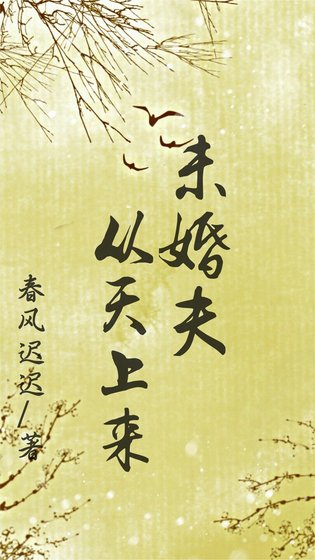 未婚夫
从天上来
春风迟迟/著